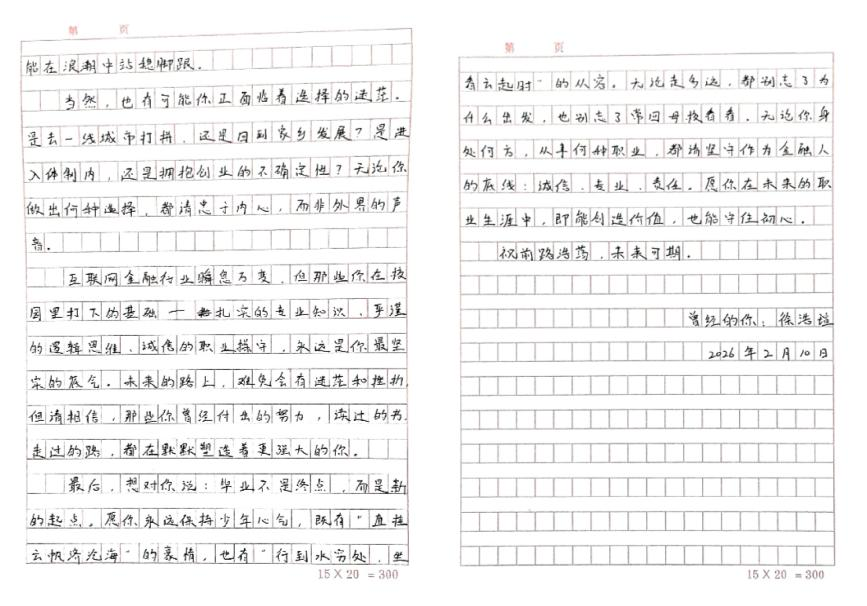 第 页
能在浪潮中站稳脚跟。
当然，也有可能你正面临着选择的迷茫。
是去一线城市打拼，还是回到家乡发展？是进
入体制内，还是拥抱创业的不确定性？无论你
做出何种选择，都请忠于内心，而非外界的声
音。
互联网金融行业瞬息万变，但那些你在校
园里打下的基础——扎实的专业知识、严谨
的逻辑思维、诚信的职业操守，永远是你最坚
实的底气。未来的路上，难免会有迷茫和挫折，
但请相信，那些你曾经付出的努力，读过的书，
走过的路，都在默默塑造着更强大的你。
最后，想对你说：毕业不是终点，而是新
的起点。愿你永远保持少年心气，既有“直挂
云帆济沧海”的豪情，也有“行到水穷处，坐
15×20 =300
第 页
看云起时”的从容。无论走多远，都别忘了为
什么出发，也别忘了常回母校看看。无论你身
处何方，从事何种职业，都请坚守作为金融人
的底线：诚信、专业、责任。愿你在未来的职
业生涯中，即能创造价值，也能守住初心。
祝前路浩荡，未来可期。
曾经的你：徐浩
2026年2月10日
15×20 =300